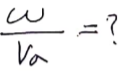 ω/Va = ?